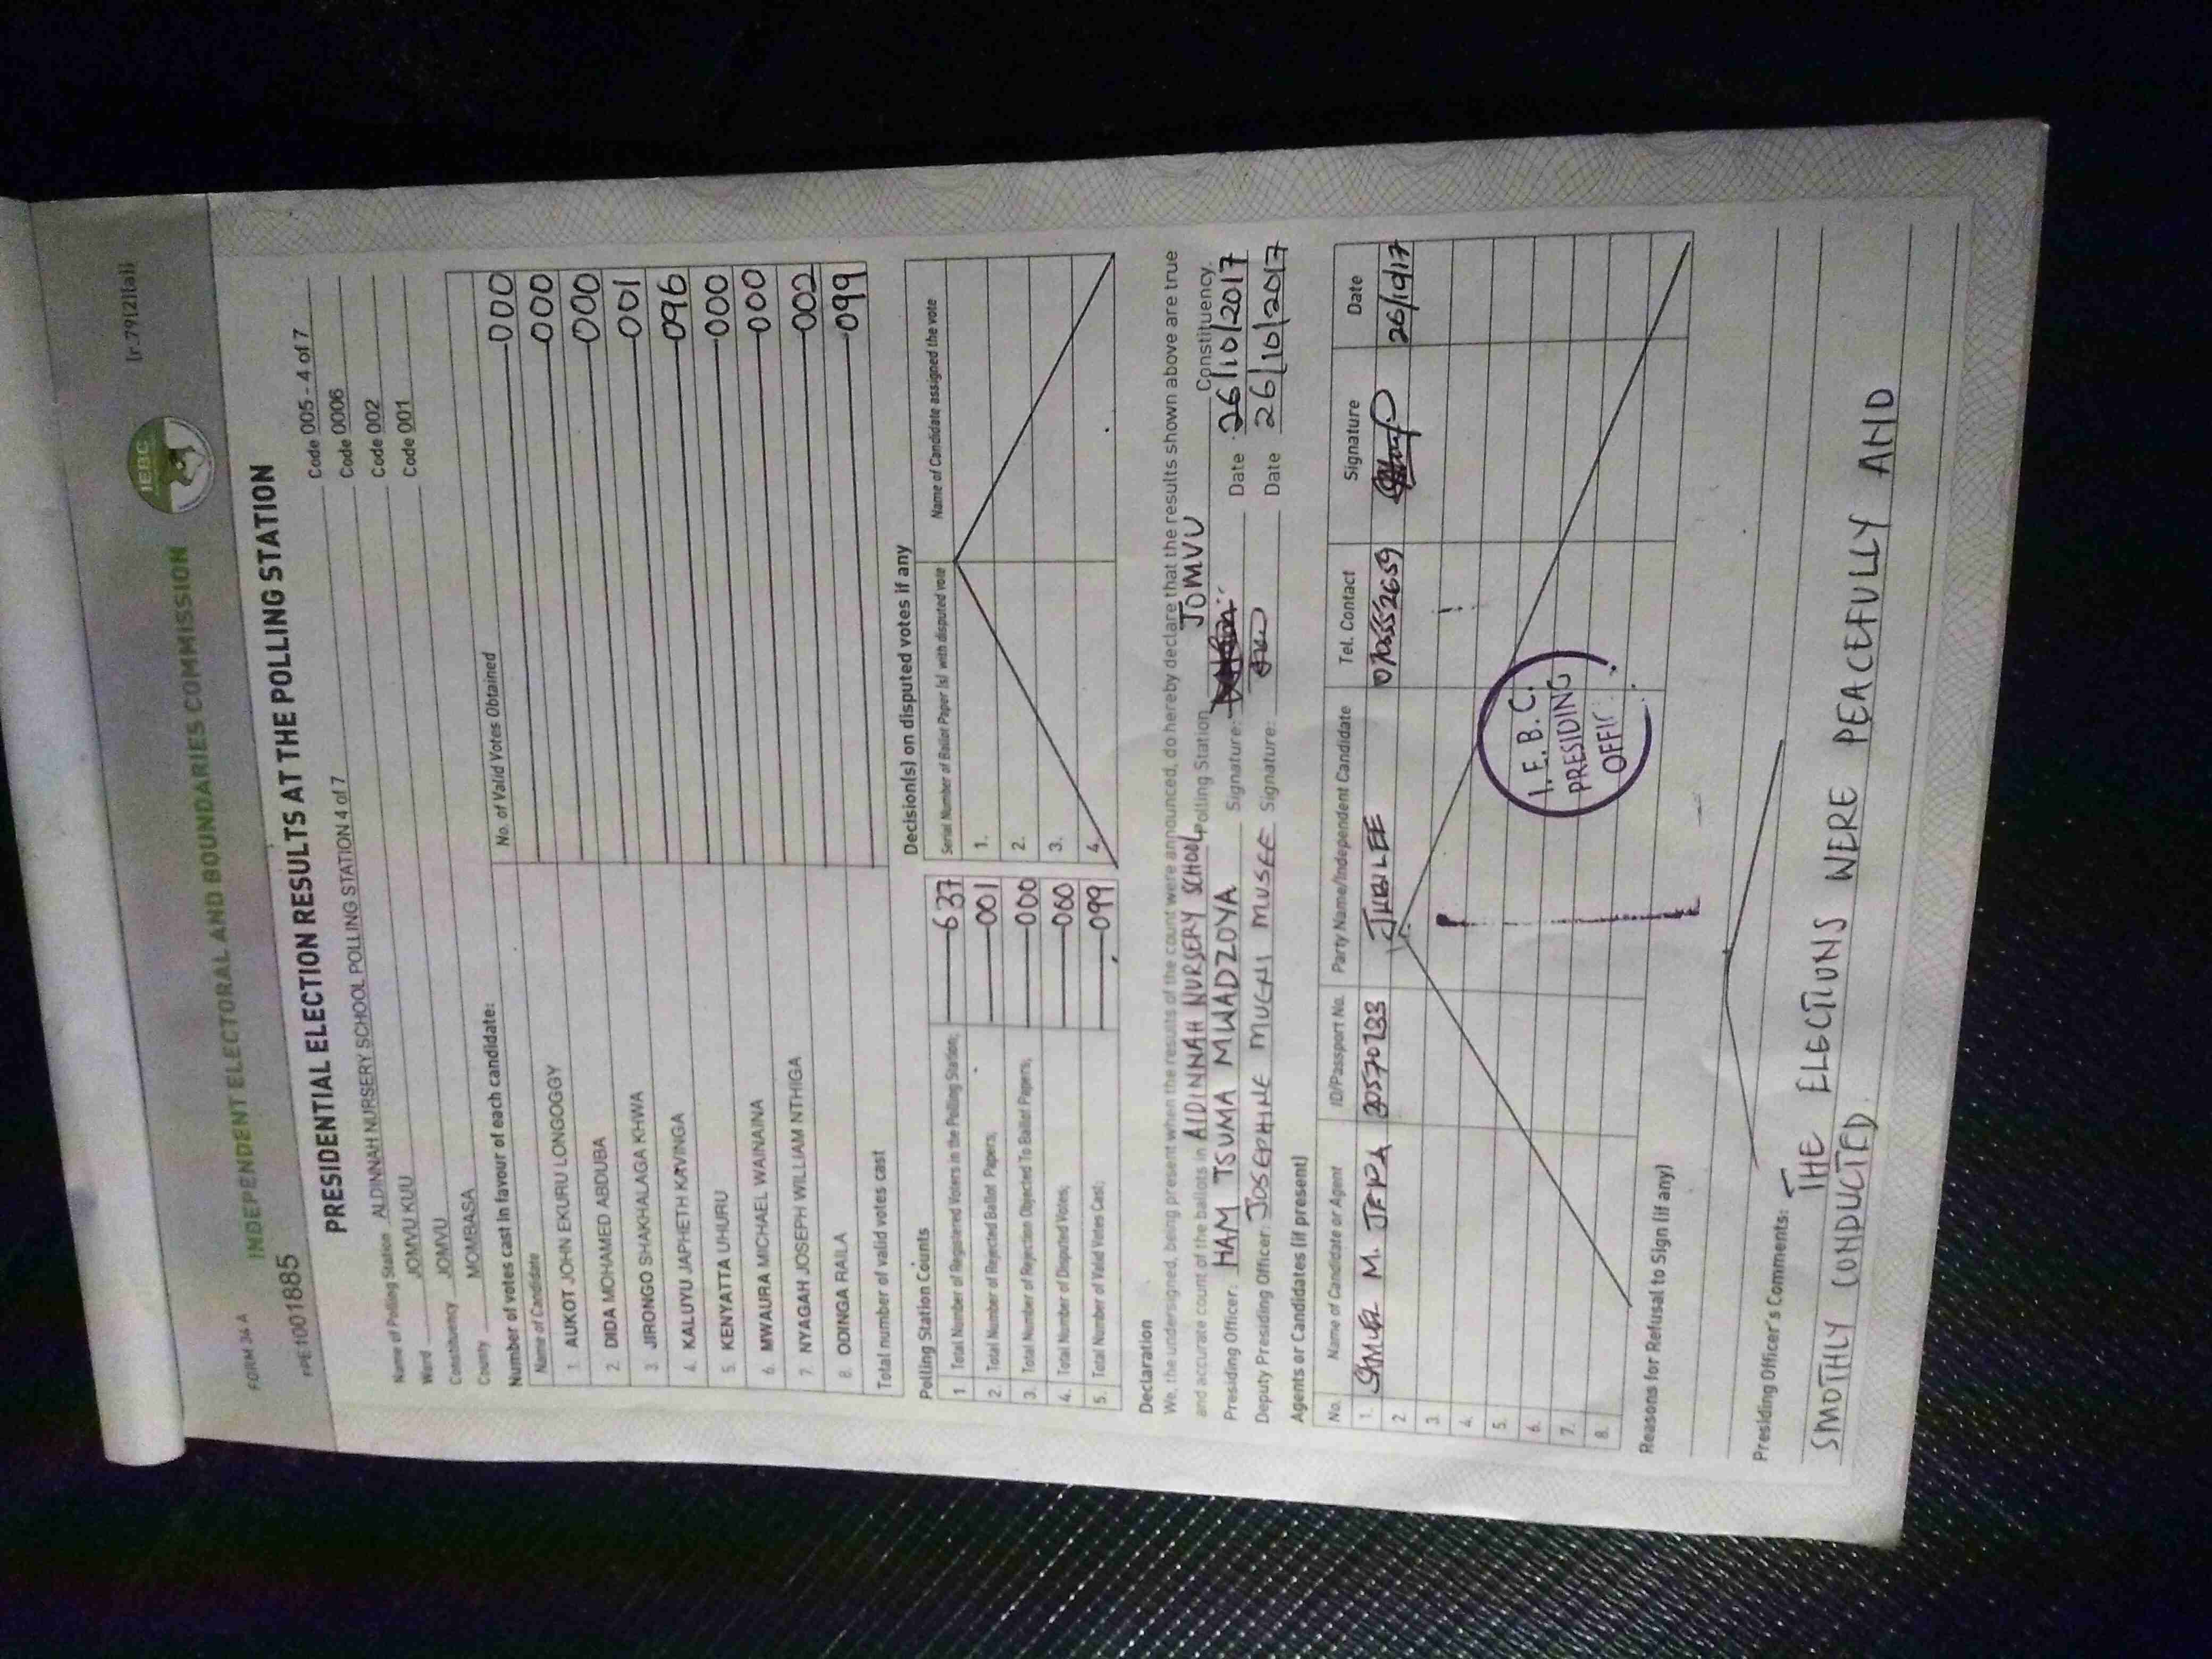 FORM 34 A
INDEPENDENT ELECTORAL AND BOUNDARIES COMMISSION
IEBC
(r.79(2)(a))
FPE1001885
PRESIDENTIAL ELECTION RESULTS AT THE POLLING STATION
Name of Polling Station ALDINNAH NURSERY SCHOOL POLLING STATION 4 of 7 Code 005 - 4 of 7
Ward JOMVU KUU Code 0006
Constituency JOMVU Code 002
County MOMBASA Code 001
Number of votes cast in favour of each candidate:
Name of Candidate No. of Valid Votes Obtained
1. AUKOT JOHN EKURU LONGOGGY 000
2. DIDA MOHAMED ABDUBA 000
3. JIRONGO SHAKHALAGA KHWA 000
4. KALUYU JAPHETH KAVINGA 001
5. KENYATTA UHURU 096
6. MWAURA MICHAEL WAINAINA 000
7. NYAGAH JOSEPH WILLIAM NTHIGA 000
8. ODINGA RAILA 002
Total number of valid votes cast 099
Polling Station Counts
1. Total Number of Registered Voters in the Polling Station; 637
2. Total Number of Rejected Ballot Papers; 001
3. Total Number of Rejection Objected To Ballot Papers; 000
4. Total Number of Disputed Votes; 000
5. Total Number of Valid Votes Cast; 099
Decision(s) on disputed votes if any
Serial Number of Ballot Paper (s) with disputed vote Name of Candidate assigned the vote
1.
2.
3.
4.
Declaration
We, the undersigned, being present when the results of the count were announced, do hereby declare that the results shown above are true
and accurate count of the ballots in ALDINNAH NURSERY SCHOOL Polling Station, JOMVU Constituency.
Presiding Officer: HAM TSUMA MWADZOYA Signature: Date 26/10/2017
Deputy Presiding Officer: JOSEPHINE MUGHI MUSEE Signature: Date 26/10/2017
Agents or Candidates (if present)
No. Name of Candidate or Agent ID/Passport No. Party Name/Independent Candidate Tel. Contact Signature Date
1. M. JUBILEE 26/10/17
2.
3.
4.
5.
6.
7.
8.
I.E.B.C.
PRESIDING
Reasons for Refusal to Sign (if any)
Presiding Officer's Comments: THE ELECTIONS WERE PEACEFULLY AND
SMOTHLY CONDUCTED.